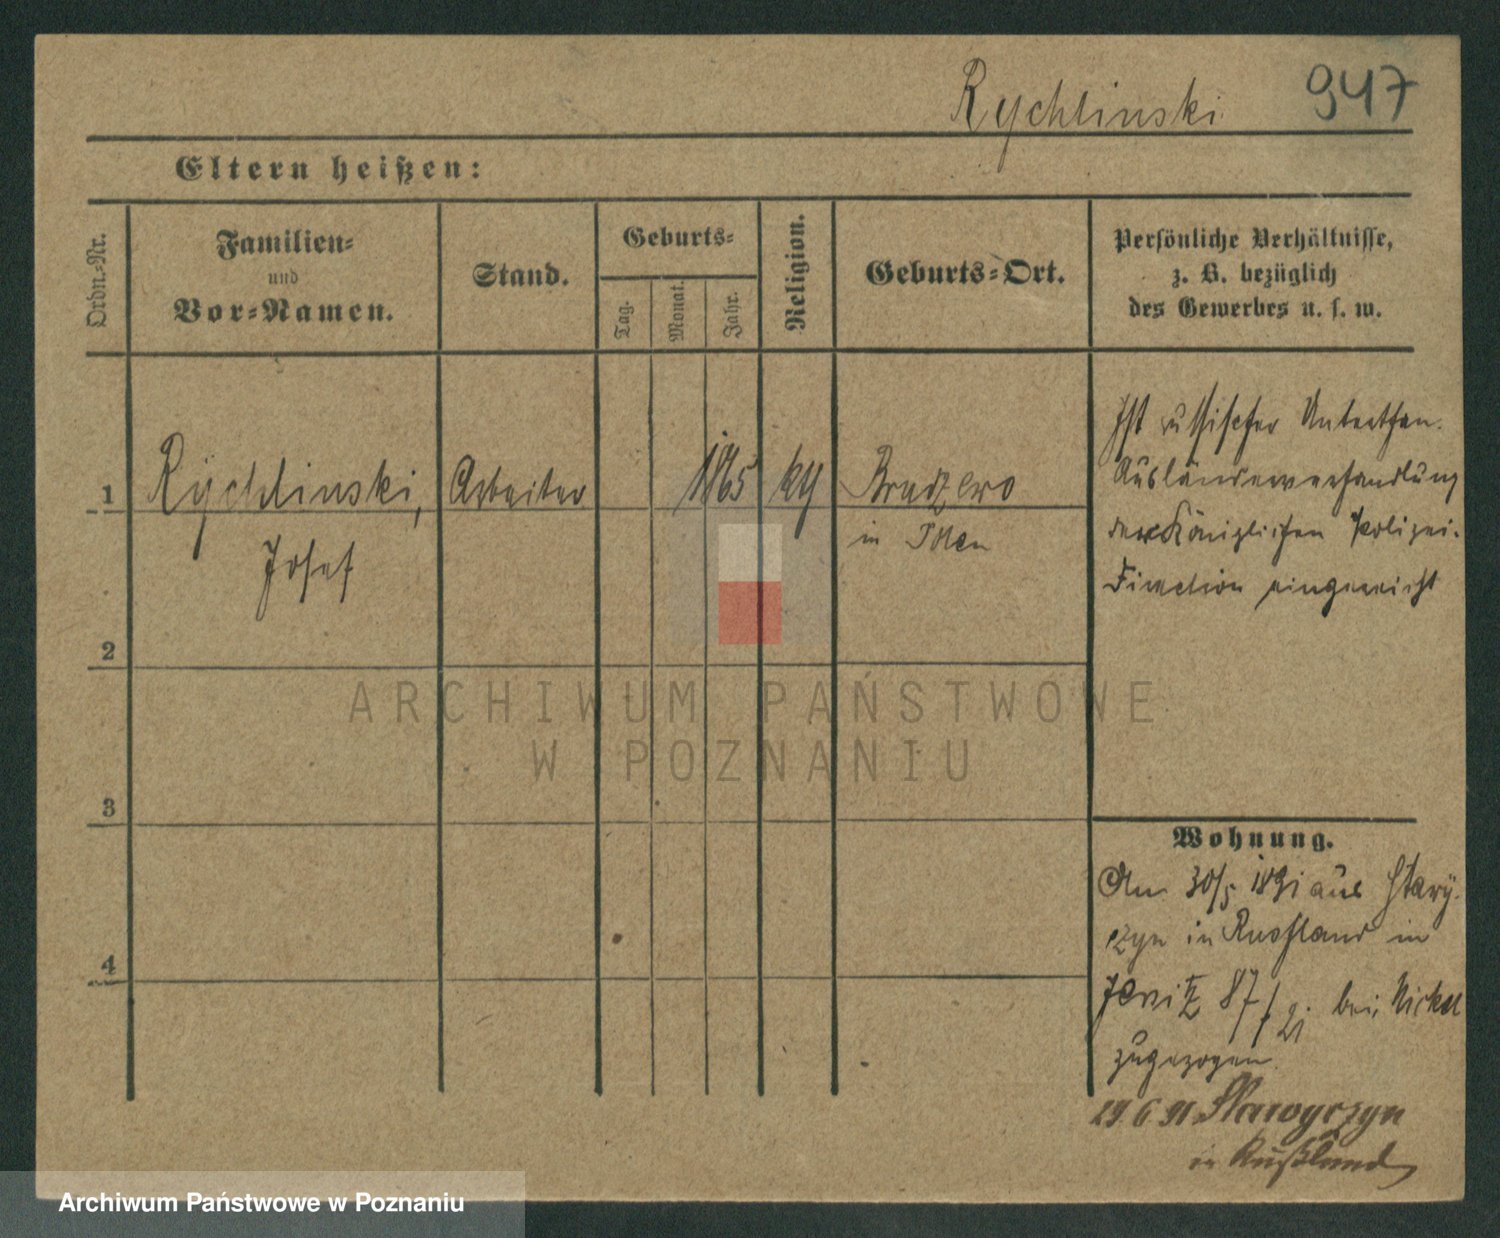 Rychlinski 947
Eltern heißen:
Ordn.-Nr.
Familien-
und
Vor-Namen.
Stand.
Geburts-
Tag.
Monat.
Jahr.
Religion.
Geburts-Ort.
Persönliche Verhältnisse,
z. B. bezüglich
des Gewerbes u. s. w.
1 Rychlinski, Arbeiter 1865 in
Josef
Ist russischer Unterthan.
Ausländerverhandlung
der Königlichen Polizei-
Direction eingereicht
2
3
4
Wohnung.
Am 30/5 1891 aus Stary-
czyn in Russland in
Jersitz 87/ bei
zugezogen.
29.6.91. Stawoyczyn
in Rußland
ARCHIWUM PAŃSTWOWE
W POZNANIU
Archiwum Państwowe w Poznaniu